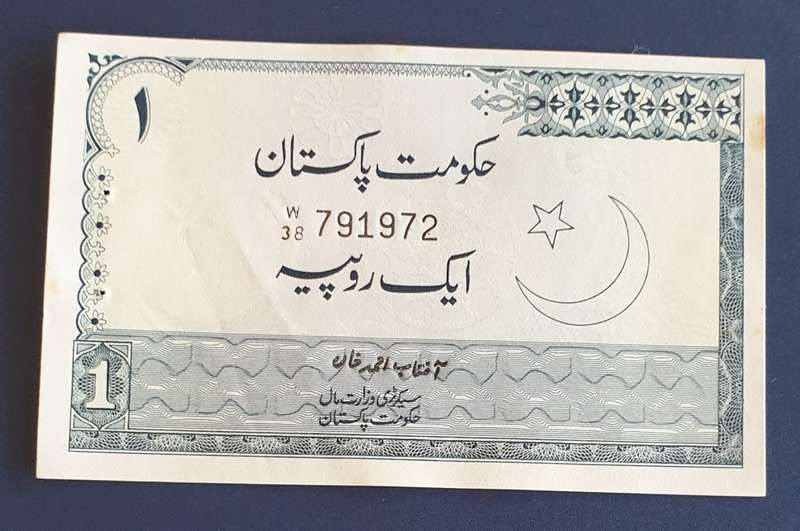 ۱
حکومت پاکستان
W
38 791972
ایک روپیہ
آفتاب احمد خان
سیکرٹری وزارت مال
حکومت پاکستان
1